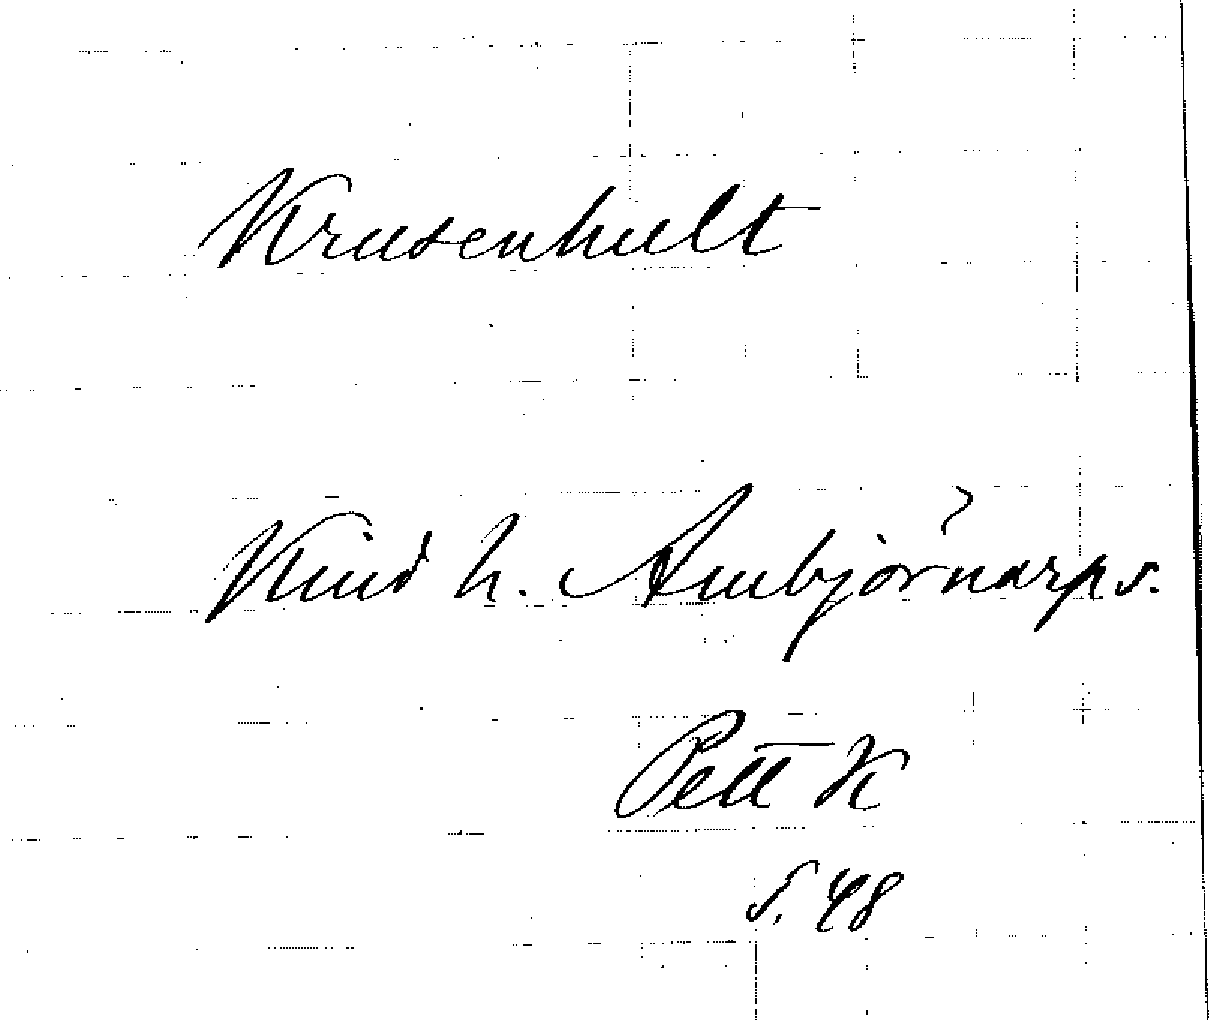 Krusenhult
Kind h. Ambjörnarps s.
Pett K
s. 48